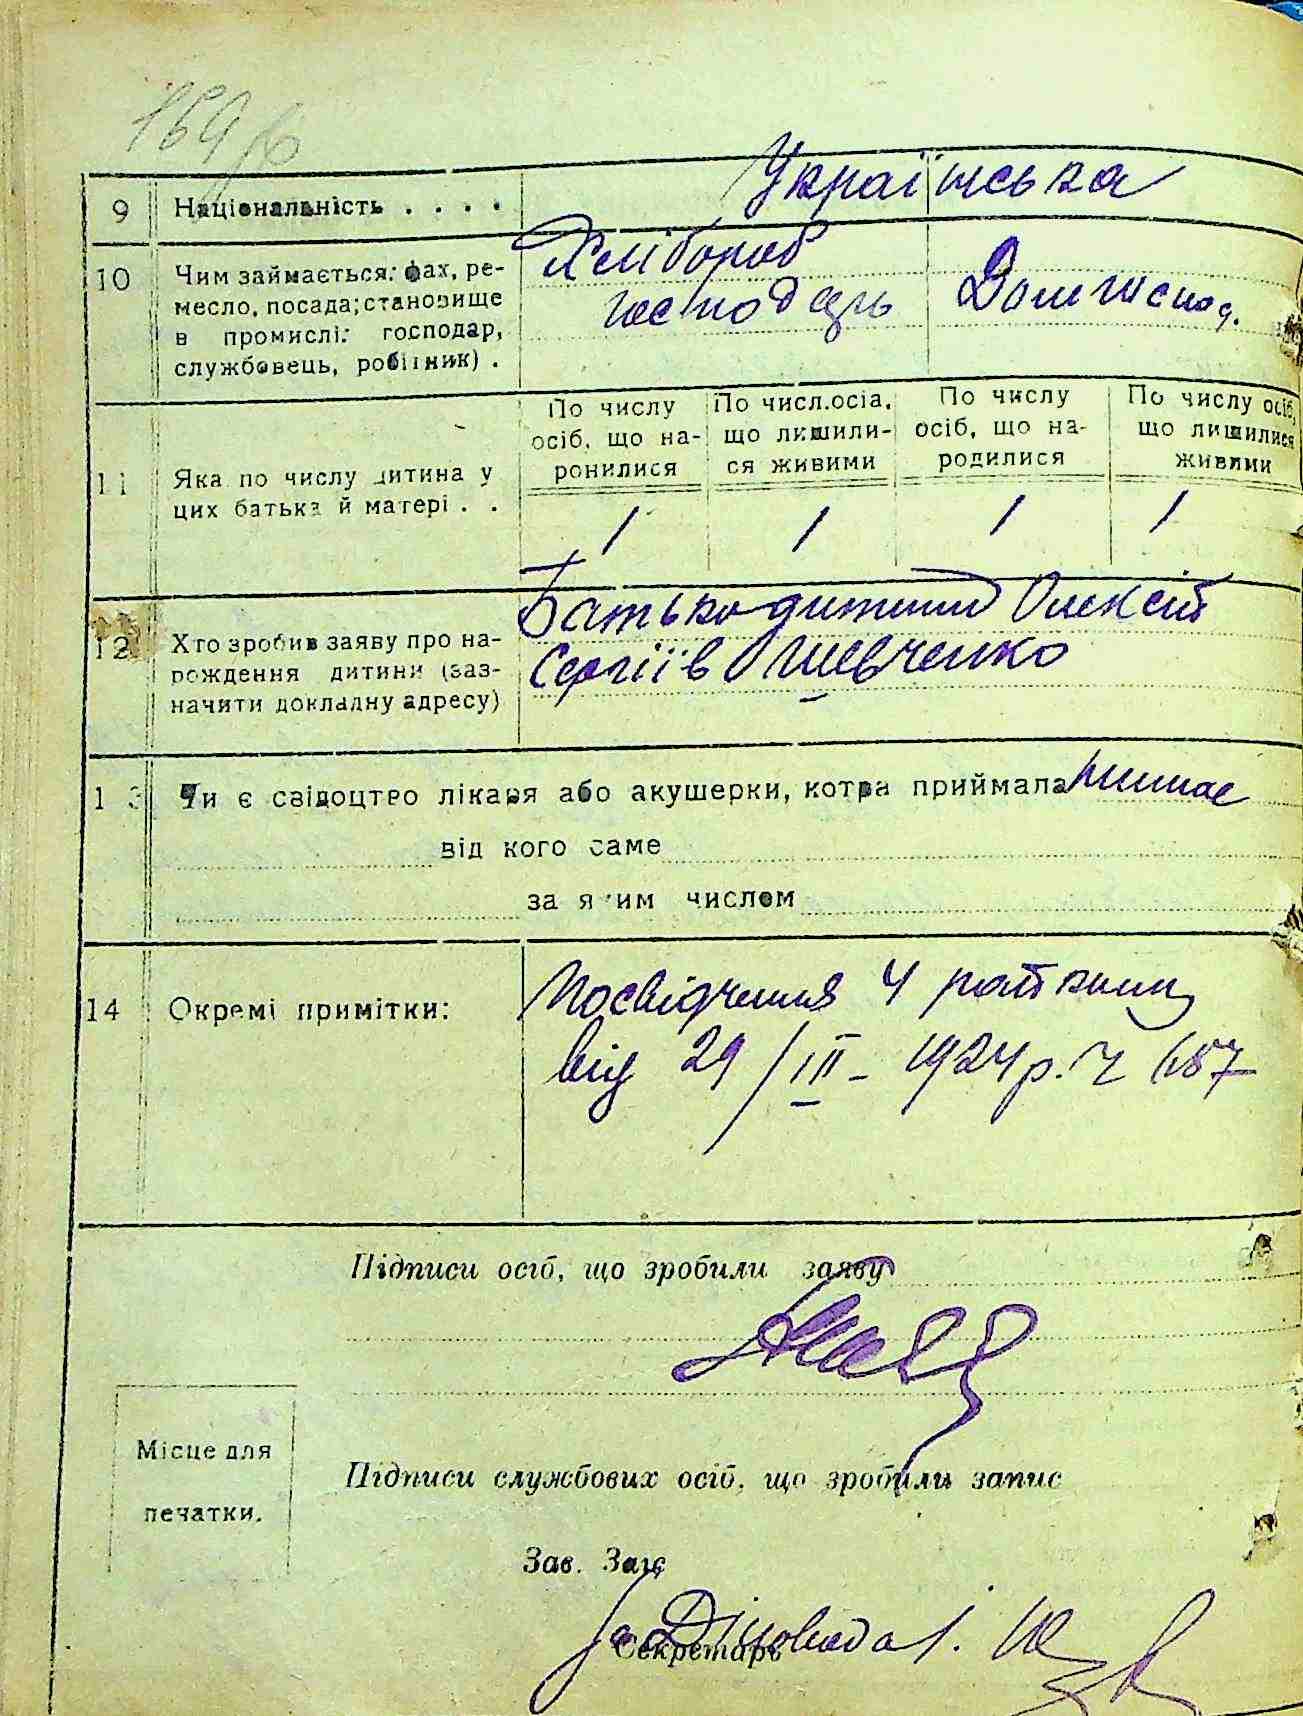 169
9 Національність . . . . Українська
10 Чим займається: фах, ре-
месло, посада; становище
в промислі: господар,
службовець, робітник) .
Хлібороб
господарь
Дом господ.
11 Яка по числу дитина у
цих батька й матері . .
По числу
осіб, що на-
ронилися
По числ.осіа,
що лишили-
ся живими
По числу
осіб, що на-
родилися
По числу осіб,
що лишилися
живими
1 1 1 1
12 Хто зробив заяву про на-
рождення дитини (заз-
начити докладну адресу)
Батько дитини Олексій
Сергіїв Шевченко
13 Чи є свідоцтво лікаря або акушерки, котра приймала немає
від кого саме
за яким числом
14 Окремі примітки:
Посвідчення
від 29/III - 1924 р. Ч 687
Підписи осіб, що зробили заяву
Місце для
печатки.
Підписи службових осіб, що зробили запис
Зав. Загс
Секретарь